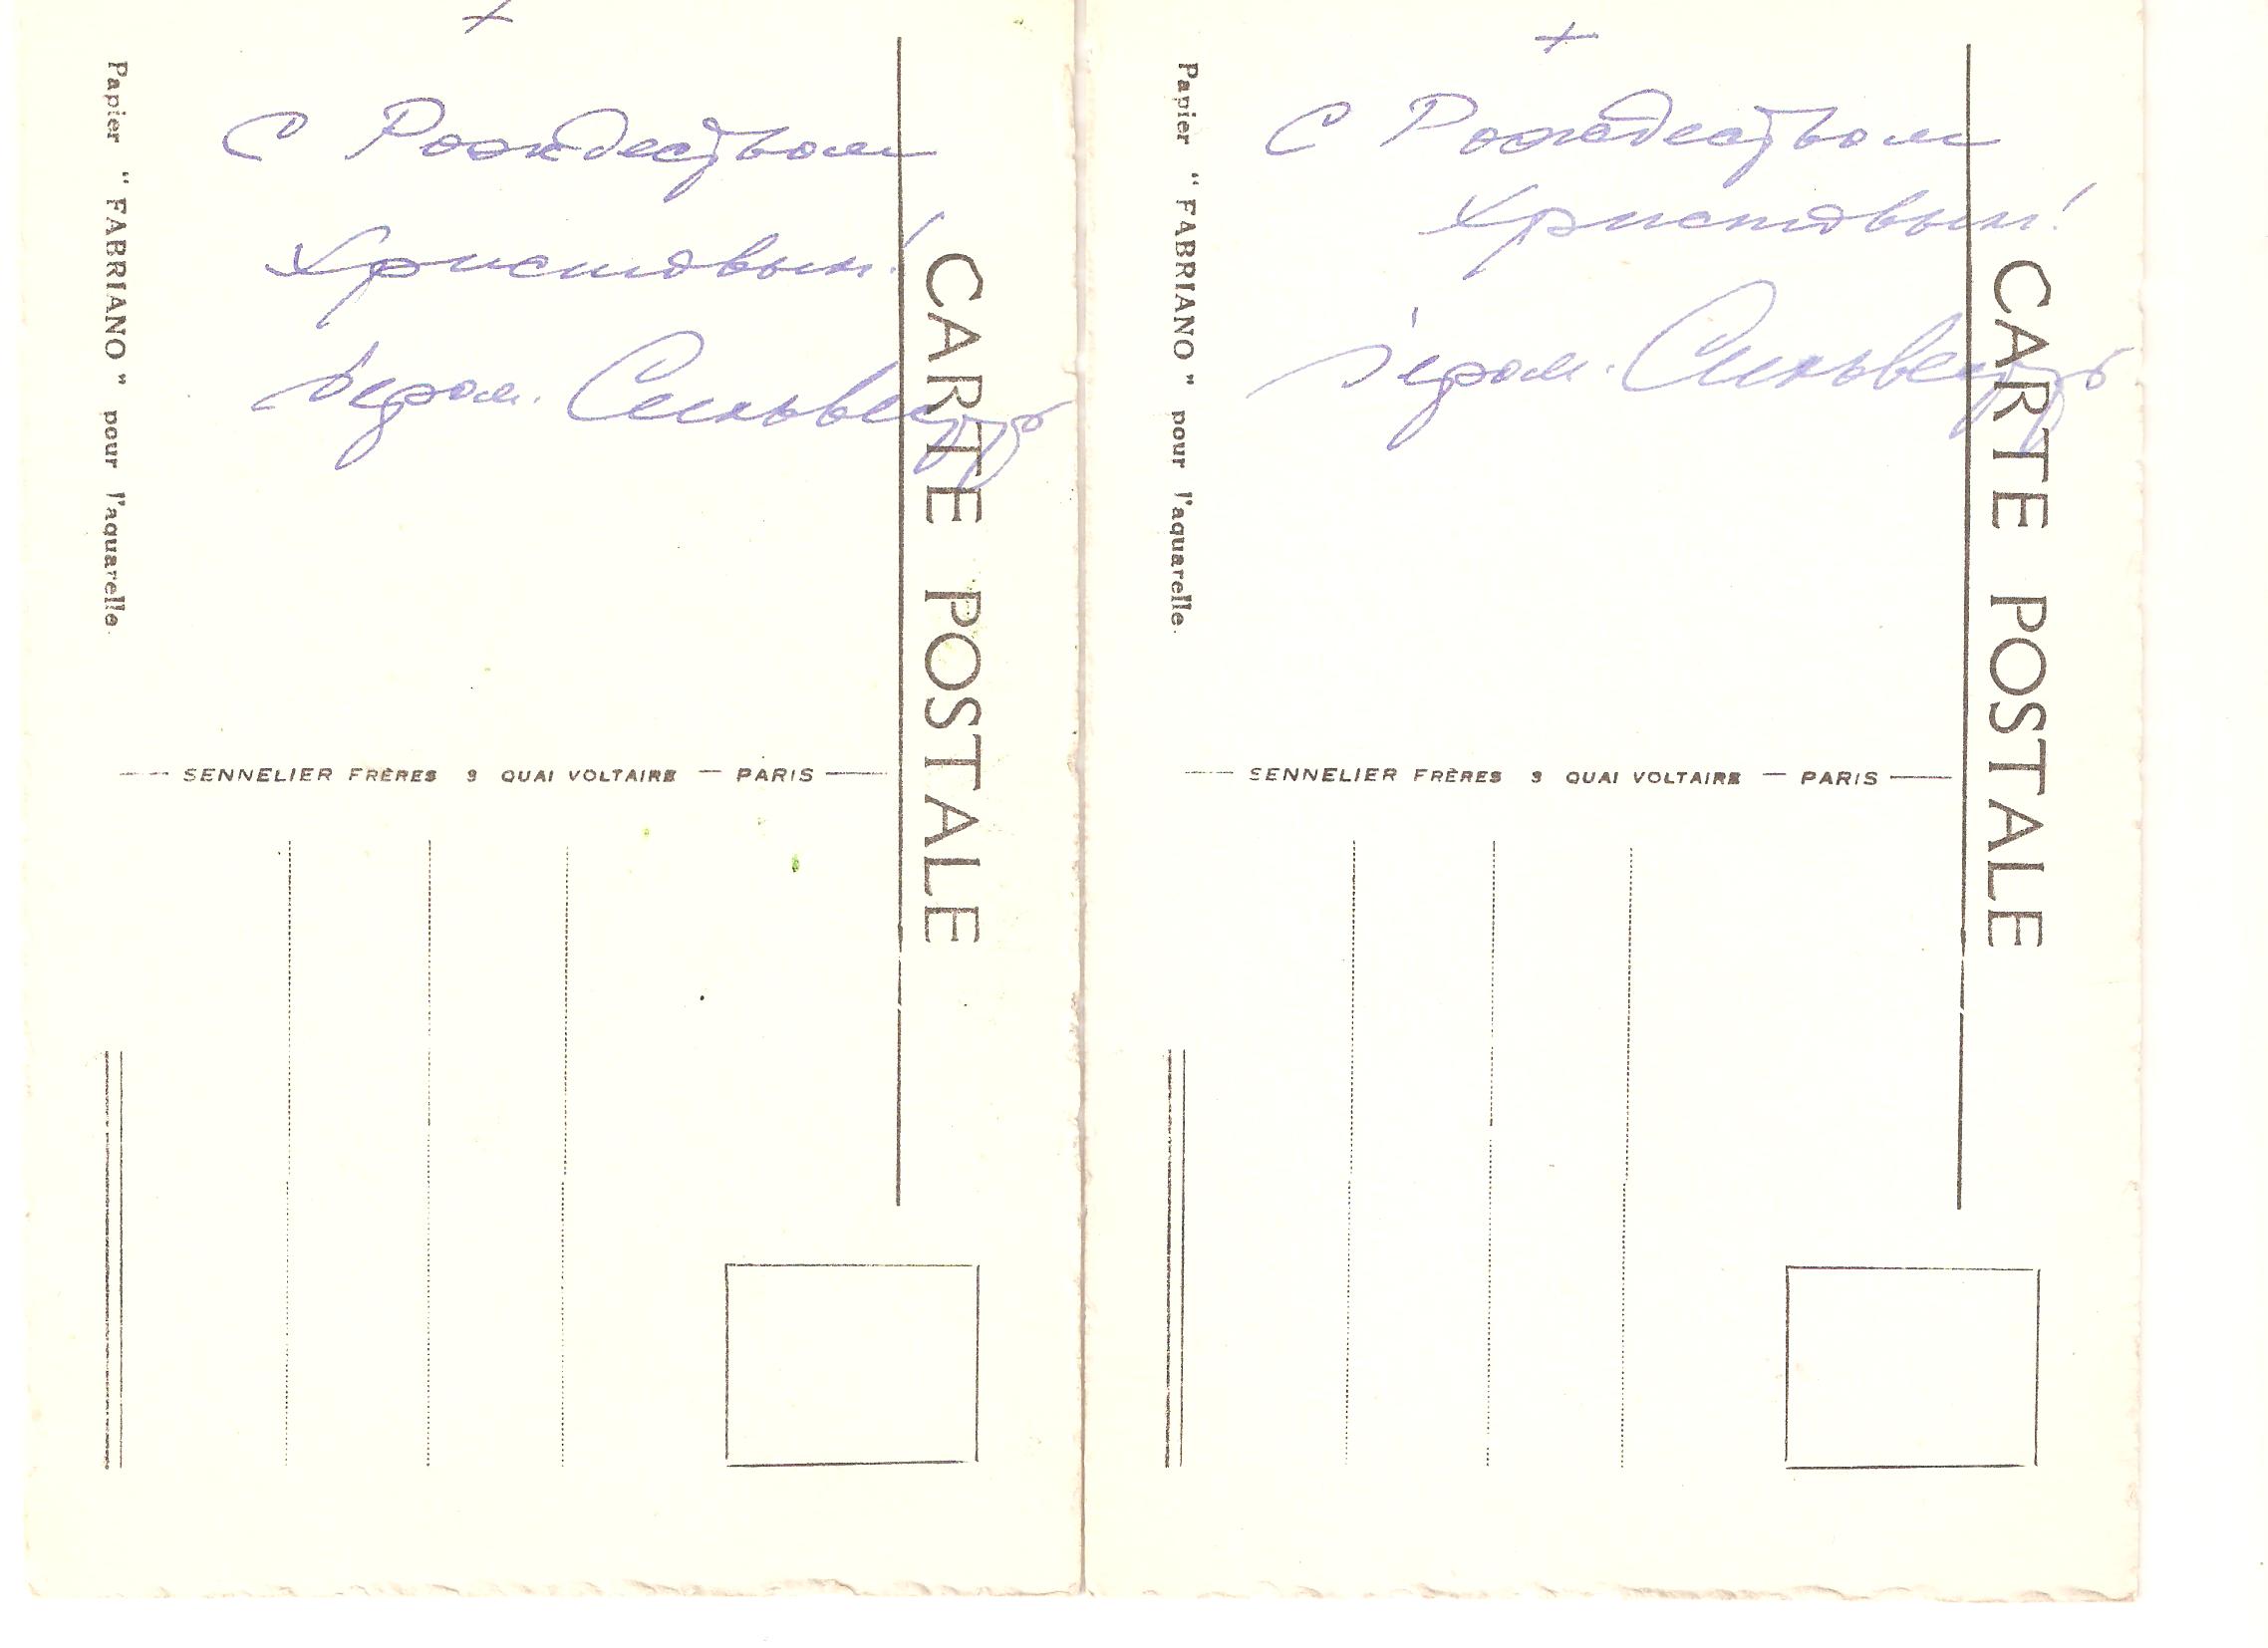 +
С Рождеством
Христовым!
Іером. Сильвестръ
Papier "FABRIANO" pour l'aquarelle.
CARTE POSTALE
SENNELIER FRÈRES 3 QUAI VOLTAIRE — PARIS
+
С Рождеством
Христовым!
Іером. Сильвестръ
Papier "FABRIANO" pour l'aquarelle.
CARTE POSTALE
SENNELIER FRÈRES 3 QUAI VOLTAIRE — PARIS